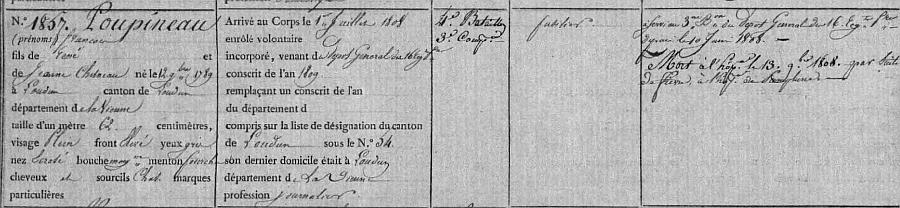 N.° 1837. Poupineau
(prénoms) francois
fils de René et
de Jeanne né le 12 9bre 1789
à Loudun canton de Loudun
département de la Vienne
taille d'un mètre 62 centimètres,
visage Plein front élevé yeux gris
nez bouche moyne menton fourchu
cheveux et sourcils Chat. marques
particulières
Arrivé au Corps le 1er Juillet 1808
enrôlé volontaire
incorporé, venant du Depot Général du
conscrit de l'an 1809
remplaçant un conscrit de l'an
du département d
compris sur la liste de désignation du canton
de Loudun sous le N.° 34
son dernier domicile était à Loudun
département de La Vienne
profession journalier
4e Bataillon
3e Compie
fusilier
a servi au 3me Bon du Depot General du 16 
depuis le 10 Juin 1808.
Mort à l'hopal le 13. 9bre 1808 par suite
de fievre, à l'hopal de Pampelune